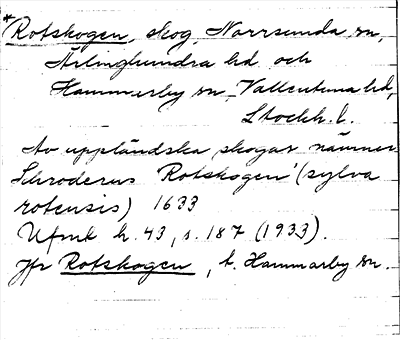 *Rotskogen, skog, Norrsunda sn,
Ärlinghundra hd och
Hammerby sn, Vallentuna hd,
Stockh. l.
Av uppländska skogar nämner
Schroderus 'Rotskogen' (sylva
rotensis) 1633
Ufmt h. 43, s. 187 (1933).
Jfr Rotskogen, t. Hammarby sn.